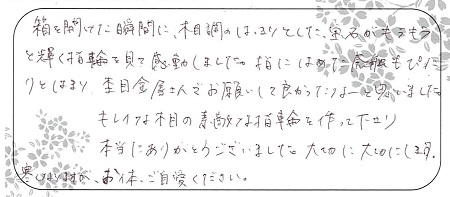 箱を開けてた瞬間に、木目調のはっきりとした、宝石がきらきら
と輝く指輪を見て感動しました。指にはめた感触もピッタ
リとはまり、杢目金屋さんでお願いして良かったなーと思いました。
キレイな木目の素敵な指輪を作って下さり
本当にありがとうございました。大切に大切にします。
寒くなりますが、お体、ご自愛ください。